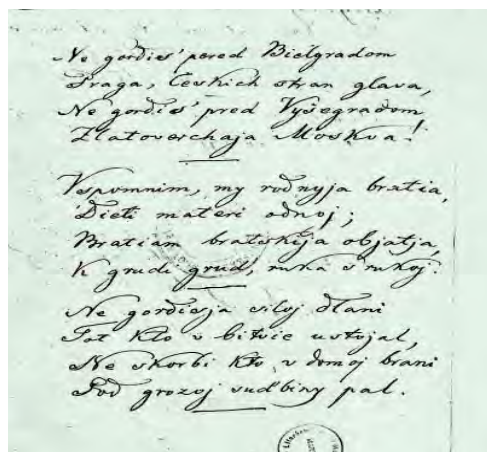 Ne gordis' pered Bielgradom
Praga, českich stran glava,
Ne gordis' pred Vyšegradom
Zlatoverchaja Moskva!
Vspomnim, my rodnyja bratia,
Dieti materi odnoj;
Bratiam bratskija objatja,
K grudi grud, ruka s rukoj.
Ne gordisja siloj dlani
Tot kto v bitvie ustojal,
Ne skorbi kto v domoj brani
Pod grozoj sudbiny pal.